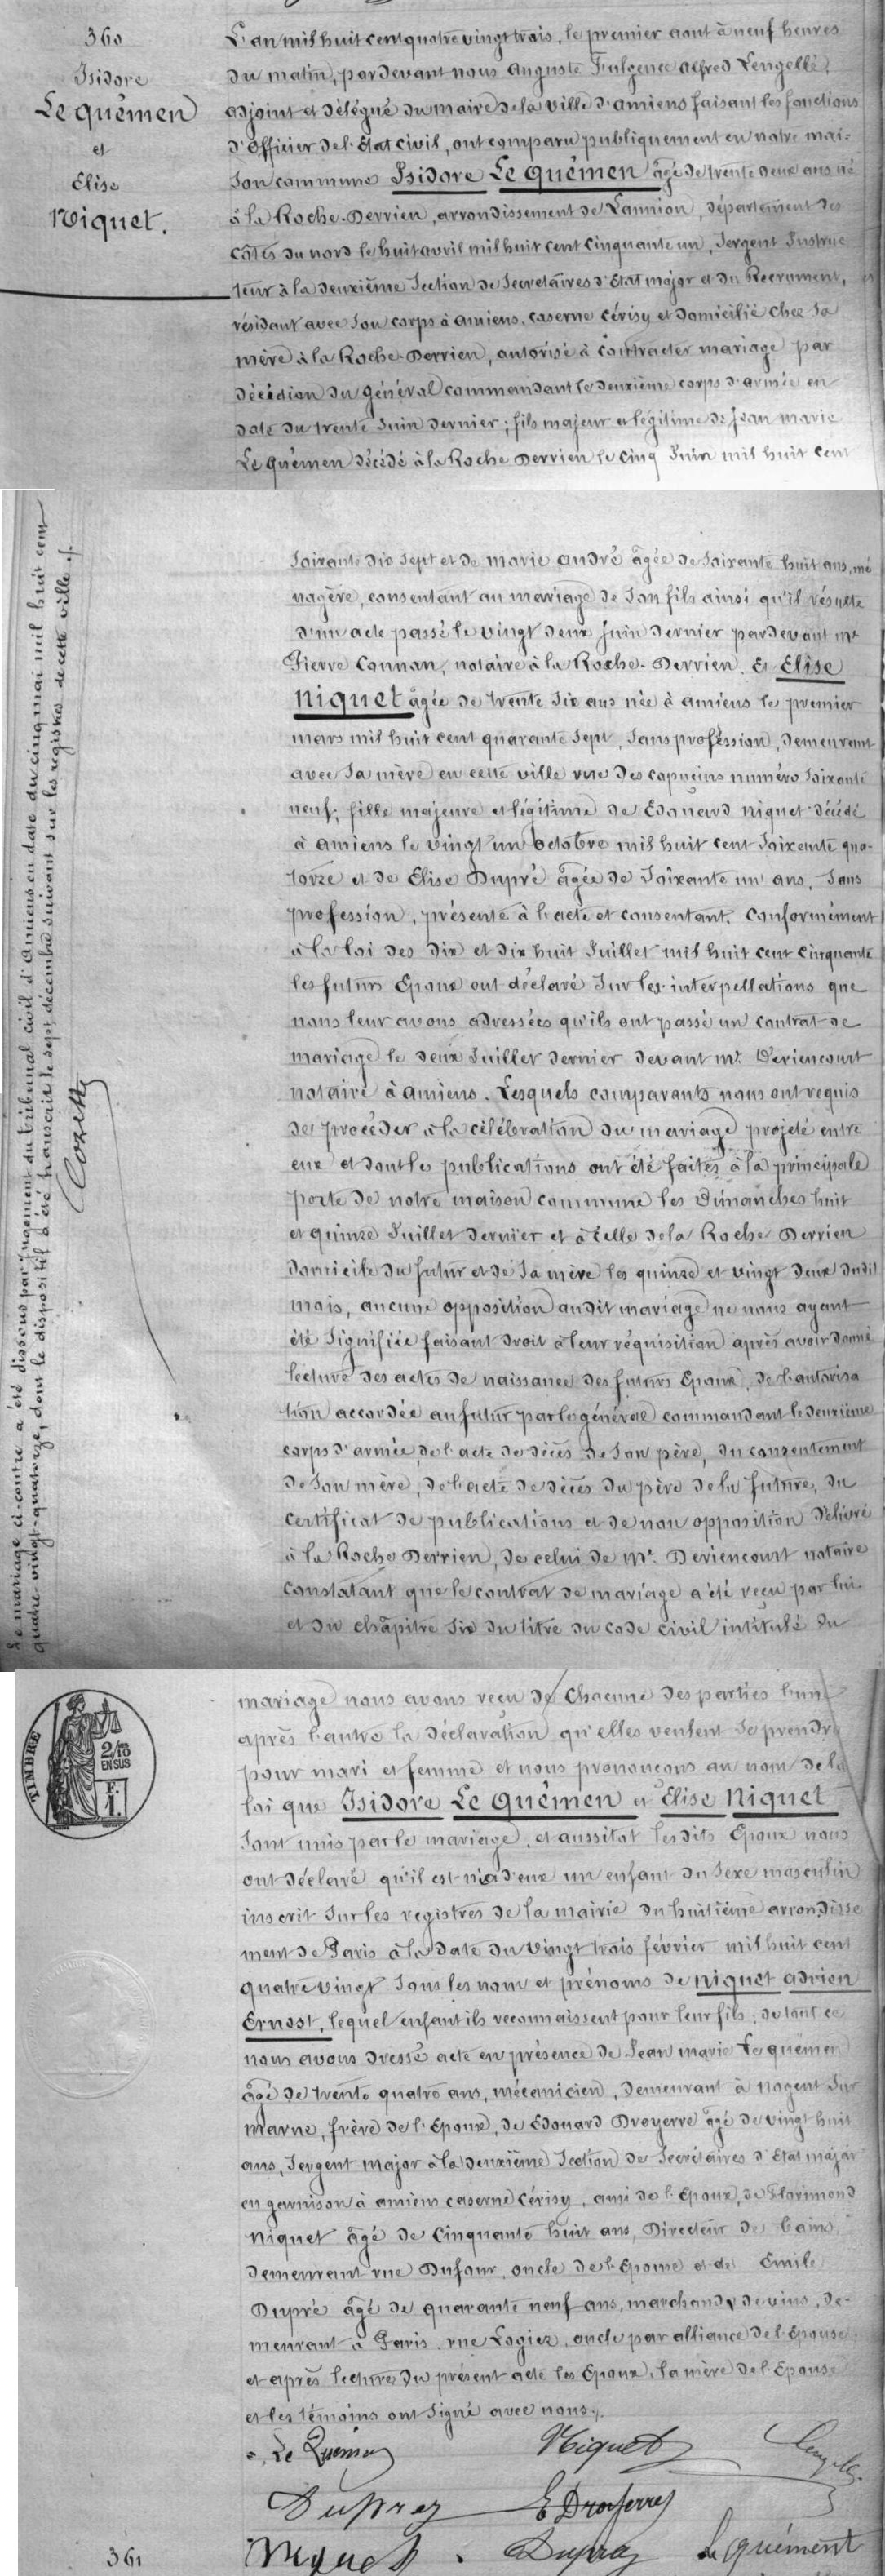 360
Isidore
Le Quêmen
et
Elise
Niquet.
L'an mil huit cent quatre vingt trois, le premier aout à neuf heures
du matin, pardevant nous Auguste Fulgence Alfred Lengellé,
adjoint et délégué du maire de la ville d'Amiens faisant les fonctions
d'Officier de l'Etat Civil, ont comparu publiquement en notre mai-
son commune Isidore Le Quêmen âgé de trente deux ans né
à la Roche-Derrien, arrondissement de Lannion, département des
Côtes du nord le huit avril mil huit cent cinquante un, Sergent Instruc
teur à la deuxième Section de Secrétaires d'Etat major et du Recrument,
résidant avec son corps à Amiens, caserne Cérisy et domicilié chez sa
mère à la Roche-Derrien, autorisé à contracter mariage par
décision du Général commandant le deuxième corps d'armée en
date du trente Juin dernier ; fils majeur et légitime de Jean Marie
Le Quêmen décédé à la Roche Derrien le cinq Juin mil huit cent
soixante dix sept et de Marie André âgée de soixante huit ans, mé
nagère, consentant au mariage de son fils ainsi qu'il résulte
d'un acte passé le vingt deux Juin dernier pardevant Me
Pierre Connan, notaire à la Roche-Derrien. Et Elise
Niquet âgée de trente six ans née à Amiens le premier
mars mil huit cent quarante sept, sans profession, demeurant
avec sa mère en cette ville rue des capucins numéro soixante
neuf ; fille majeure et légitime de Edouard Niquet décédé
à Amiens le vingt un Octobre mil huit cent soixante qua-
torze et de Elise Dupré âgée de soixante un ans, sans
profession, présente à l'acte et consentant. Conformément
à la loi des dix et dix huit Juillet mil huit cent cinquante
les futurs Epoux ont déclaré sur les interpellations que
nous leur avons adressées qu'ils ont passé un contrat de
mariage le deux Juillet dernier devant Me. Deriencourt
notaire à Amiens. Lesquels comparants nous ont requis
de procéder à la célébration du mariage projeté entre
eux et dont les publications ont été faites à la principale
porte de notre maison commune les Dimanches huit
et quinze Juillet dernier et à celle de la Roche Derrien
domicile du futur et de sa mère les quinze et vingt deux dudit
mois, aucune opposition audit mariage ne nous ayant
été signifiée faisant droit à leur réquisition après avoir donné
lecture des actes de naissance des futurs Epoux, de l'autorisa
tion accordée au futur par le général commandant le deuxième
corps d'armée, de l'acte de décès de son père, du consentement
de son mère, de l'acte de décès du père de la future, du
certificat de publications et de non opposition délivré
à la Roche Derrien, de celui de Me. Deriencourt notaire
constatant que le contrat de mariage a été reçu par lui
et du chapitre six du titre du code civil intitulé du
Le mariage ci-contre a été dissous par Jugement du tribunal civil d'Amiens en date du cinq mai mil huit cent
quatre-vingt-quatorze, dont le dispositif a été transcrit le sept décembre suivant sur les registres de cette ville ./.
Cozette
TIMBRE
2/10
EN SUS
mariage nous avons reçu de chacune des parties l'une
après l'autre la déclaration qu'elles veulent se prendre
pour mari et femme et nous prononçons au nom de la
loi que Isidore Le Quêmen et Elise Niquet
sont unis par le mariage, et aussitot les dits Epoux nous
ont déclaré qu'il est né d'eux un enfant du sexe masculin
inscrit sur les registres de la mairie du huitième arrondisse
ment de Paris à la date du vingt trois février mil huit cent
quatre vingt sous les nom et prénoms de Niquet Adrien
Ernest, lequel enfant ils reconnaissent pour leur fils ; de tout ce
nous avons dressé acte en présence de Jean Marie Le Quêmen
âgé de trente quatre ans, mécanicien, demeurant à Nogent sur
Marne, frère de l'Epoux, de Edouard Droyerre âgé de vingt huit
ans, Sergent major à la deuxième Section de Secrétaires d'Etat major
en garnison à Amiens caserne Cérisy, ami de l'Epoux, de Florimond
Niquet âgé de cinquante huit ans, Directeur de bains,
demeurant rue Dufour, oncle de l'Epouse et de Emile
Dupré âgé de quarante neuf ans, marchand de vins, de-
meurant à Paris, rue Logier, oncle par alliance de l'Epouse
et après lecture du présent acte les Epoux, la mère de l'Epouse
et les témoins ont signé avec nous.
Le Quémen
Niquet
Lengellé
Duprez
E Droyerre
Niquet
Duprez
Le Quément
361